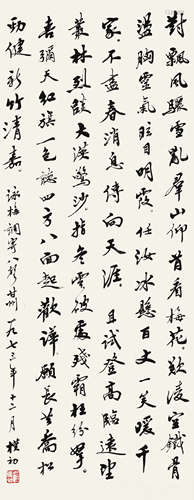 對飄風驟雪亂群山仰首看梅花歎凌空鐵骨
盪胸靈氣眩目明霞任汝冰懸百丈一笑暖千
家不盡春消息傳向天涯 且試登高臨遠望
叢林烈燄大漠驚沙指冬雲破處殘霜枉紛拏
喜彌天紅旗一色聽四方八面起歡譁願長共喬松
勁健新竹清嘉
詠梅調寄八聲甘州 一九七三年十二月 樸初